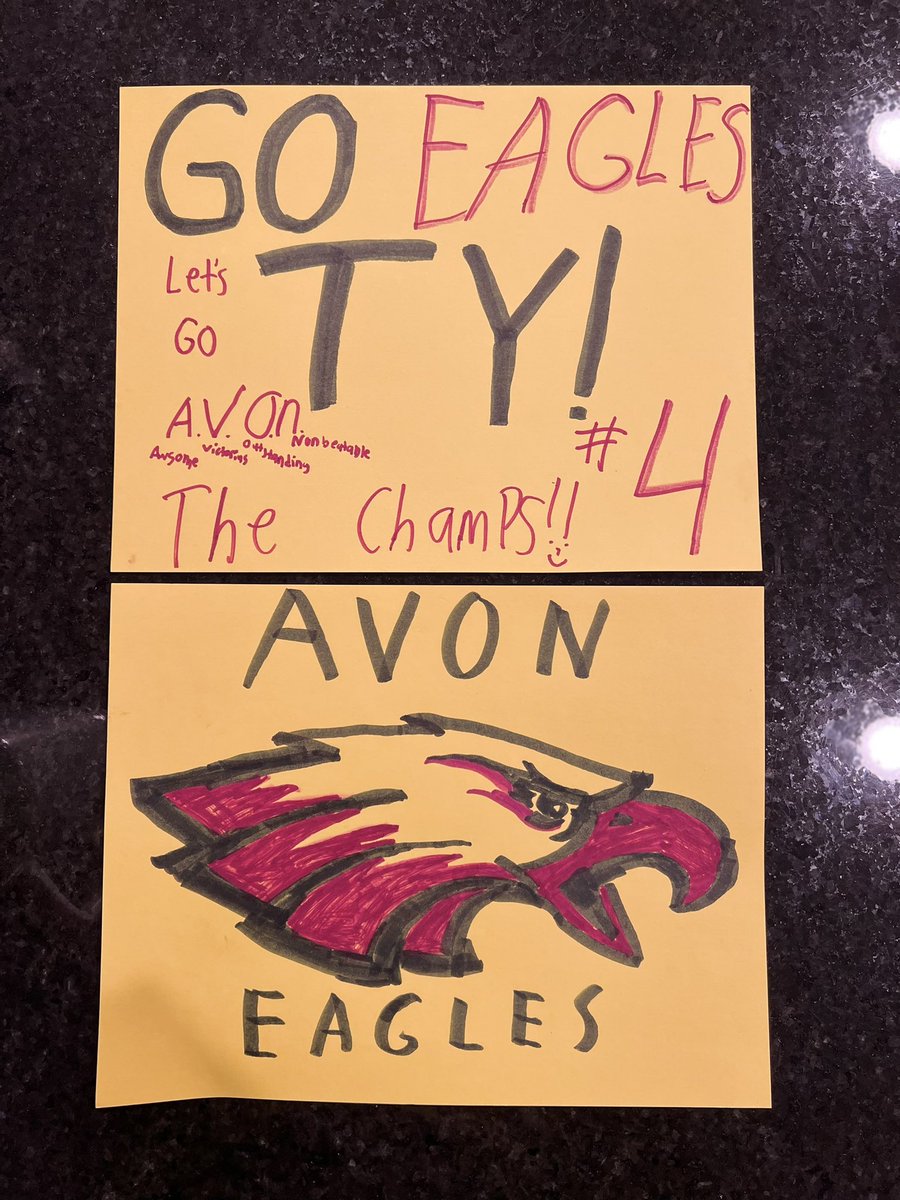 GO EAGLES
Let's
GO
TY!
A.V.O.n.
Awsome Victorius Outstanding Nonbeatable
#4
The Champs!!
AVON
EAGLES